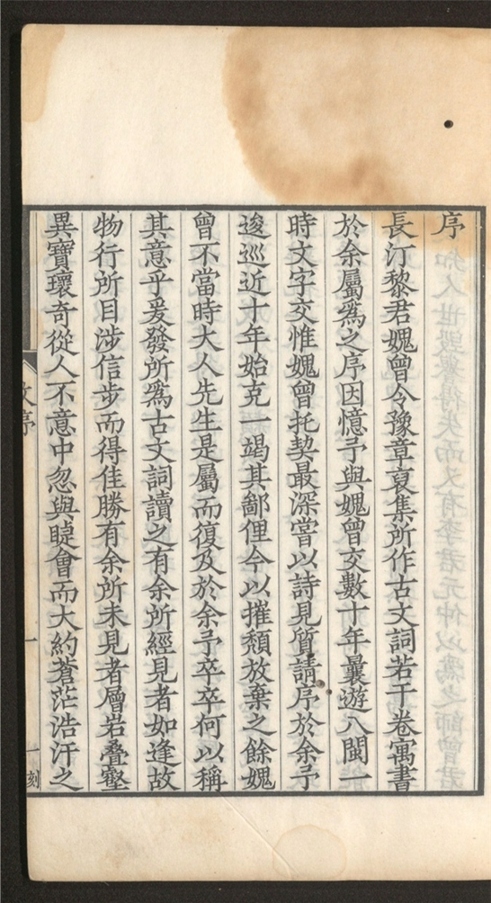 序
長汀黎君媿曾令豫章裒集所作古文詞若干卷寓書
於余屬爲之序因憶予與媿曾交數十年曩遊八閩一
時文字交惟媿曾托契最深嘗以詩見質請序於余予
逡巡近十年始克一竭其鄙俚今以摧頹放棄之餘媿
曾不當時大人先生是屬而復及於余予卒卒何以稱
其意乎爰發所爲古文詞讀之有余所經見者如逢故
物行所目涉信步而得佳勝有余所未見者層岩叠壑
異寶瓌奇從人不意中忽與睫會而大約蒼茫浩汗之
序
一
一刻